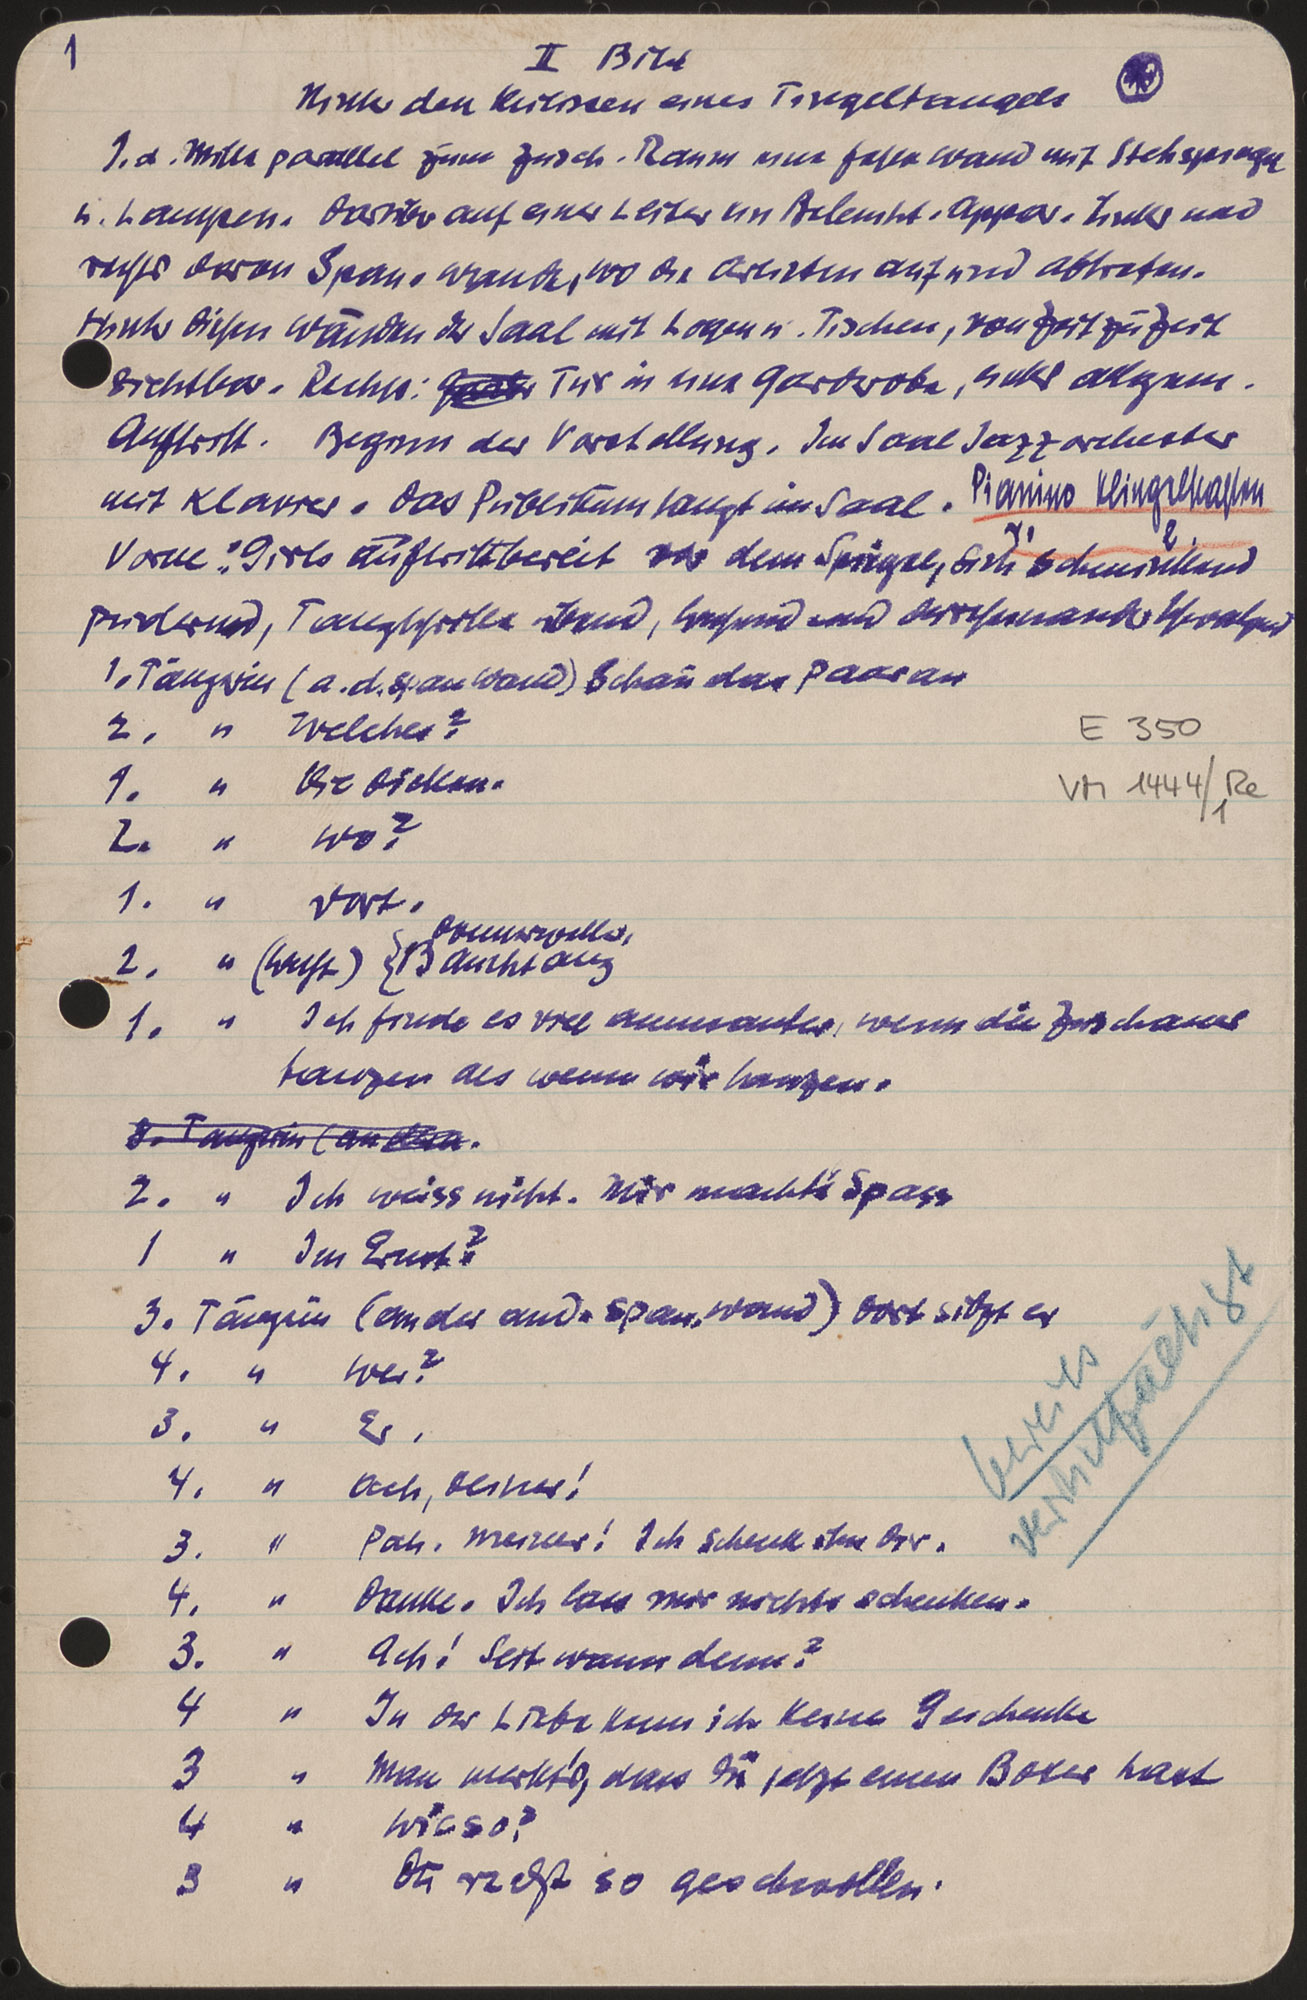 1
II Bild
Hinter den Kulissen eines Tingeltangels
I. d. Mitte parallel zum Zusch. Raum eine feste Wand mit Stehspiegel
u. Lampen. Darüber auf einer Leiter ein Beleucht. Appar. Links und
rechts davon Span. wände, wo die Artisten auf und abtreten.
Hinter diesen Wänden der Saal mit Logen u. Tischen, von Zeit zu Zeit
sichtbar. Rechts: Tür in eine Garderobe, links allgem.
Auftritt. Beginn der Vorstellung. Im Saal Jazzorchester
mit Klavier. Das Publikum tanzt im Saal. Pianino Klingelkasten
1. 2.
Vorne: Girls auftrittbereit vor dem Spiegel, sich schminkend
pudernd, Tanzschritte übend, lachend und durcheinander
1. Tänzerin (a. d. span Wand) Schau das Paar an
2. " Welches?
1. " Die Dicken.
2. " Wo?
1. " Dort.
Donnerwetter,
2. " (lacht) {Bauchtanz
1. " Ich finde es viel amusanter, wenn die Zuschauer
tanzen als wenn wir tanzen.
3. Tänzerin (an der
2. " Ich weiss nicht. Mir macht's Spass
1 " Im Ernst?
3. Tänzerin (an der and. Span. wand) Dort sitzt er
4. " Wer?
3. " Er.
4. " Ach, Deiner!
3. " Pah. Meiner! Ich schenk ihn Dir.
4. " Danke. Ich lass mir nichts schenken.
3. " Ach! Seit wann denn?
4 " In der Liebe kenn ich keine Geschenke
3 " Man merkt's, dass Du jetzt einen Boxer hast
4 " Wieso?
3 " Du redst so geschwollen.
E 350
VM 1444/Re
1
bereits